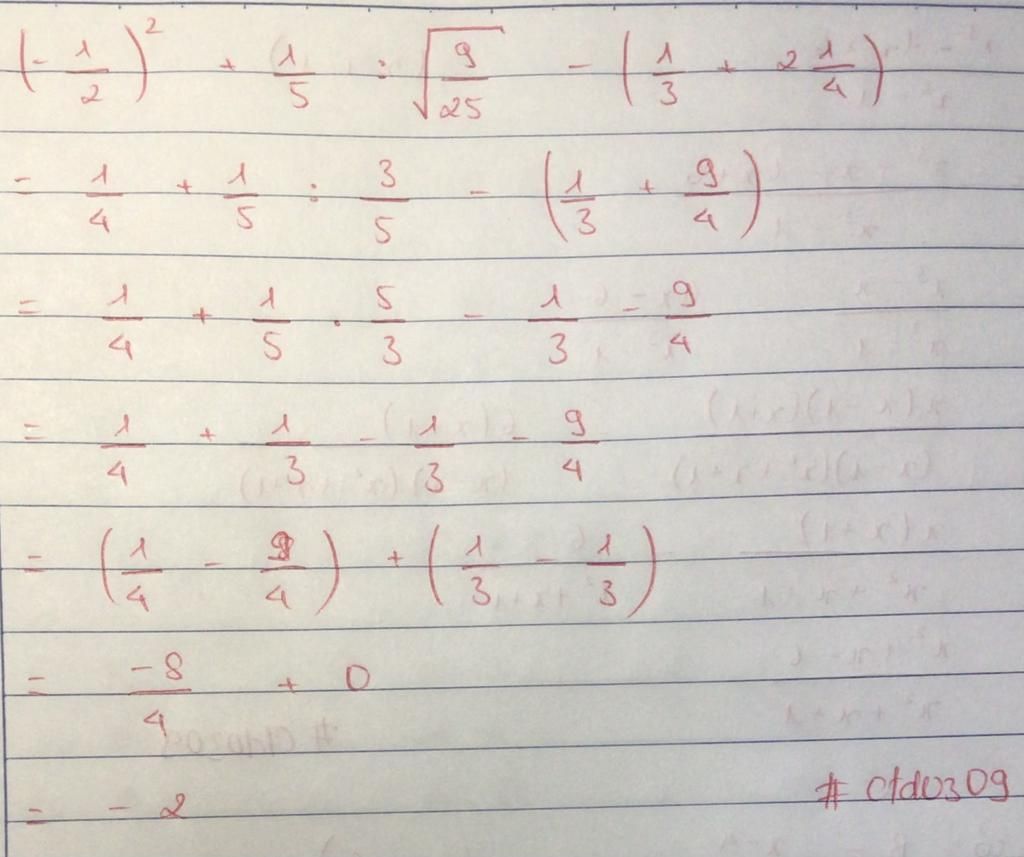 (- 1/2)² + 1/5 : √(9/25) - (1/3 + 2 1/4)
= 1/4 + 1/5 : 3/5 - (1/3 + 9/4)
= 1/4 + 1/5 . 5/3 - 1/3 - 9/4
= 1/4 + 1/3 - 1/3 - 9/4
= (1/4 - 9/4) + (1/3 - 1/3)
= -8/4 + 0
= - 2